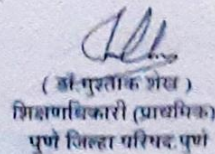 ( डॉ.मुश्ताक शेख )
शिक्षणाधिकारी (प्राथमिक)
पुणे जिल्हा परिषद पुणे